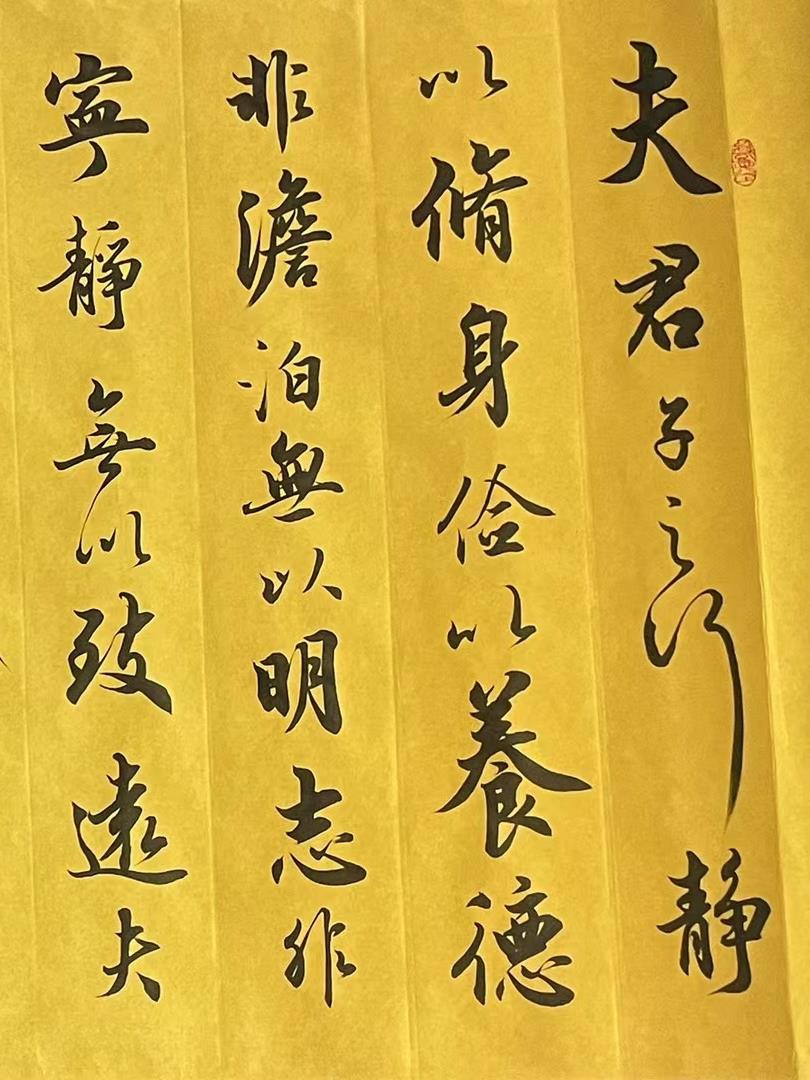 夫君子之行靜
以脩身儉以養德
非澹泊無以明志非
寧靜無以致遠夫